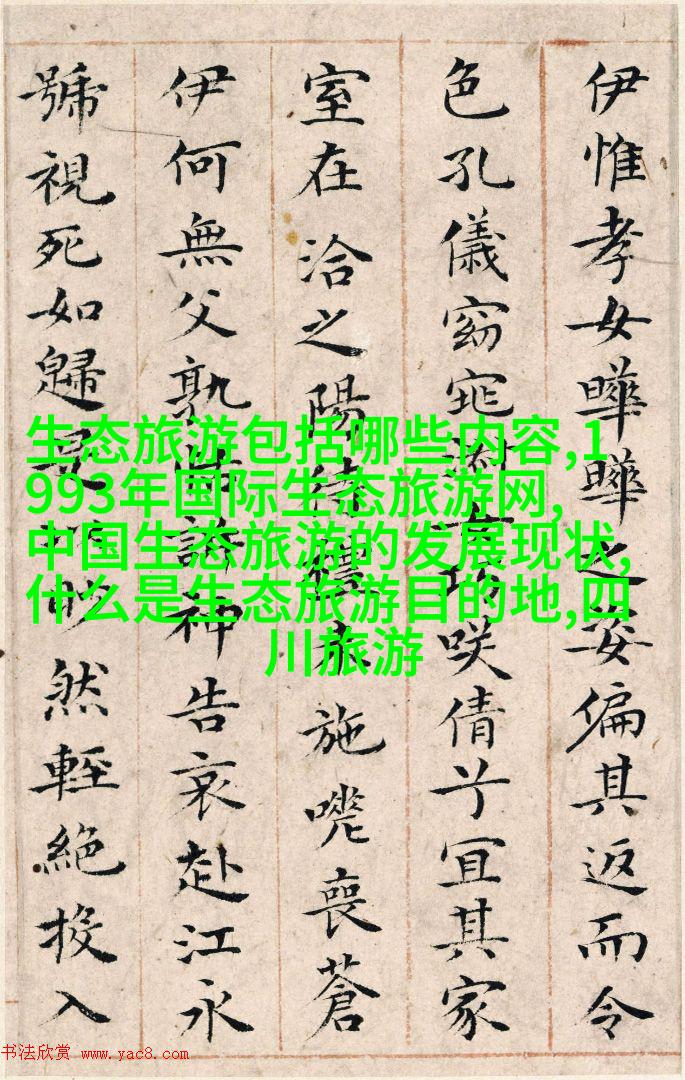 伊惟孝女曄曄之姿偏其返而令
色孔儀窈窕淑女巧咲倩兮宜其家
室在洽之陽待禮未施嗟喪蒼
伊何無父孰怙訴神告哀赴江永
號視死如歸是以眇然輕絕投入
生态旅游包括哪些内容,1
993年国际生态旅游网,
中国生态旅游的发展现状,
什么是生态旅游目的地,四
川旅游
书法欣赏 www.yac8.com